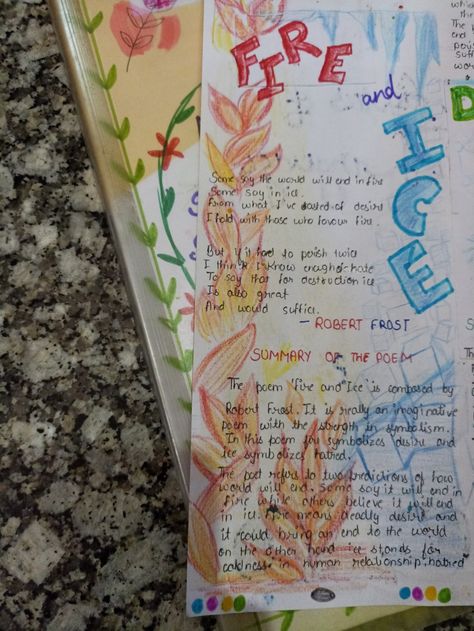 FIRE
and
ICE
Some say the world will end in fire
Some say in ice.
From what I've tasted of desire
I hold with those who favour fire.
But if it had to perish twice
I think I know enough of hate
To say that for destruction ice
Is also great
And would suffice.
- ROBERT FROST
SUMMARY OF THE POEM
The poem 'fire and Ice' is composed by
Robert Frost. It is really an imaginative
poem with the strength in symbolism.
In this poem fire symbolizes desire and
ice symbolizes hatred.
The poet refers to two predictions of how
world will end. Some say it will end in
fire while others believe it will end
in ice. Fire means deadly desire and
it could bring an end to the world
on the other hand ice stands for
coldness in human relationship, hatred